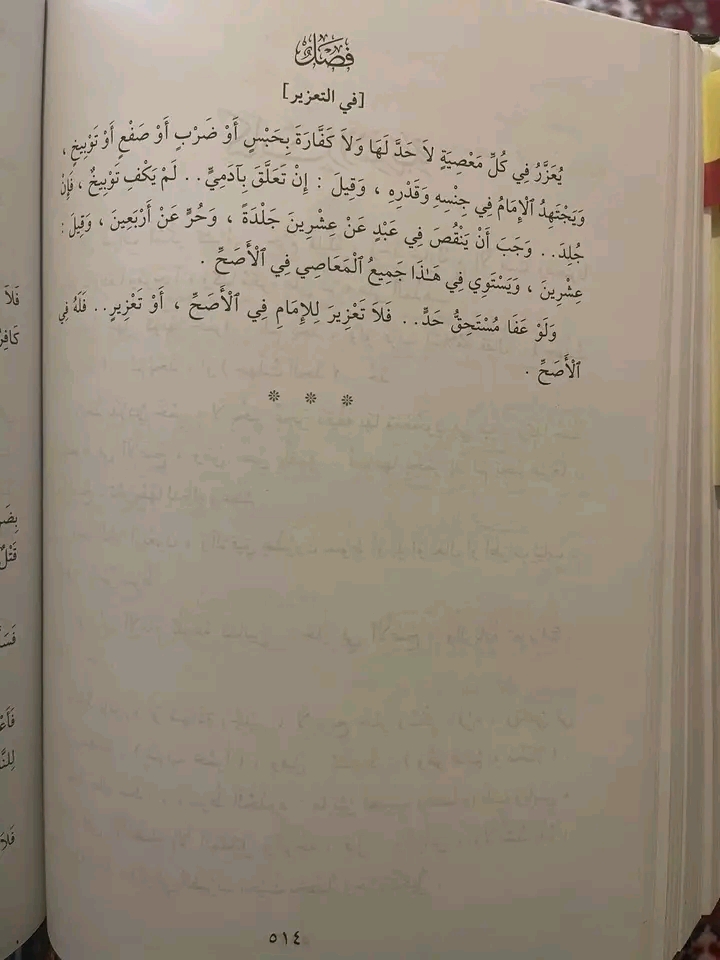 فصل
[في التعزير]
يُعَزَّرُ فِي كُلِّ مَعْصِيَةٍ لاَ حَدَّ لَهَا وَلاَ كَفَّارَةَ بِحَبْسٍ أَوْ ضَرْبٍ أَوْ صَفْعٍ أَوْ تَوْبِيخٍ ،
وَيَجْتَهِدُ ٱلْإِمَامُ فِي جِنْسِهِ وَقَدْرِهِ ، وَقِيلَ : إِنْ تَعَلَّقَ بِآدَمِيٍّ.. لَمْ يَكْفِ تَوْبِيخٌ ، فَإِنْ
جُلِدَ.. وَجَبَ أَنْ يَنْقُصَ فِي عَبْدٍ عَنْ عِشْرِينَ جَلْدَةً ، وَحُرٍّ عَنْ أَرْبَعِينَ ، وَقِيلَ :
عِشْرِينَ ، وَيَسْتَوِي فِي هَـٰذَا جَمِيعُ ٱلْمَعَاصِي فِي ٱلْأَصَحِّ .
وَلَوْ عَفَا مُسْتَحِقُّ حَدٍّ.. فَلاَ تَعْزِيرَ لِلإِمَامِ فِي ٱلْأَصَحِّ ، أَوْ تَعْزِيرٍ.. فَلَهُ فِي
ٱلْأَصَحِّ .
* * *
٥١٤